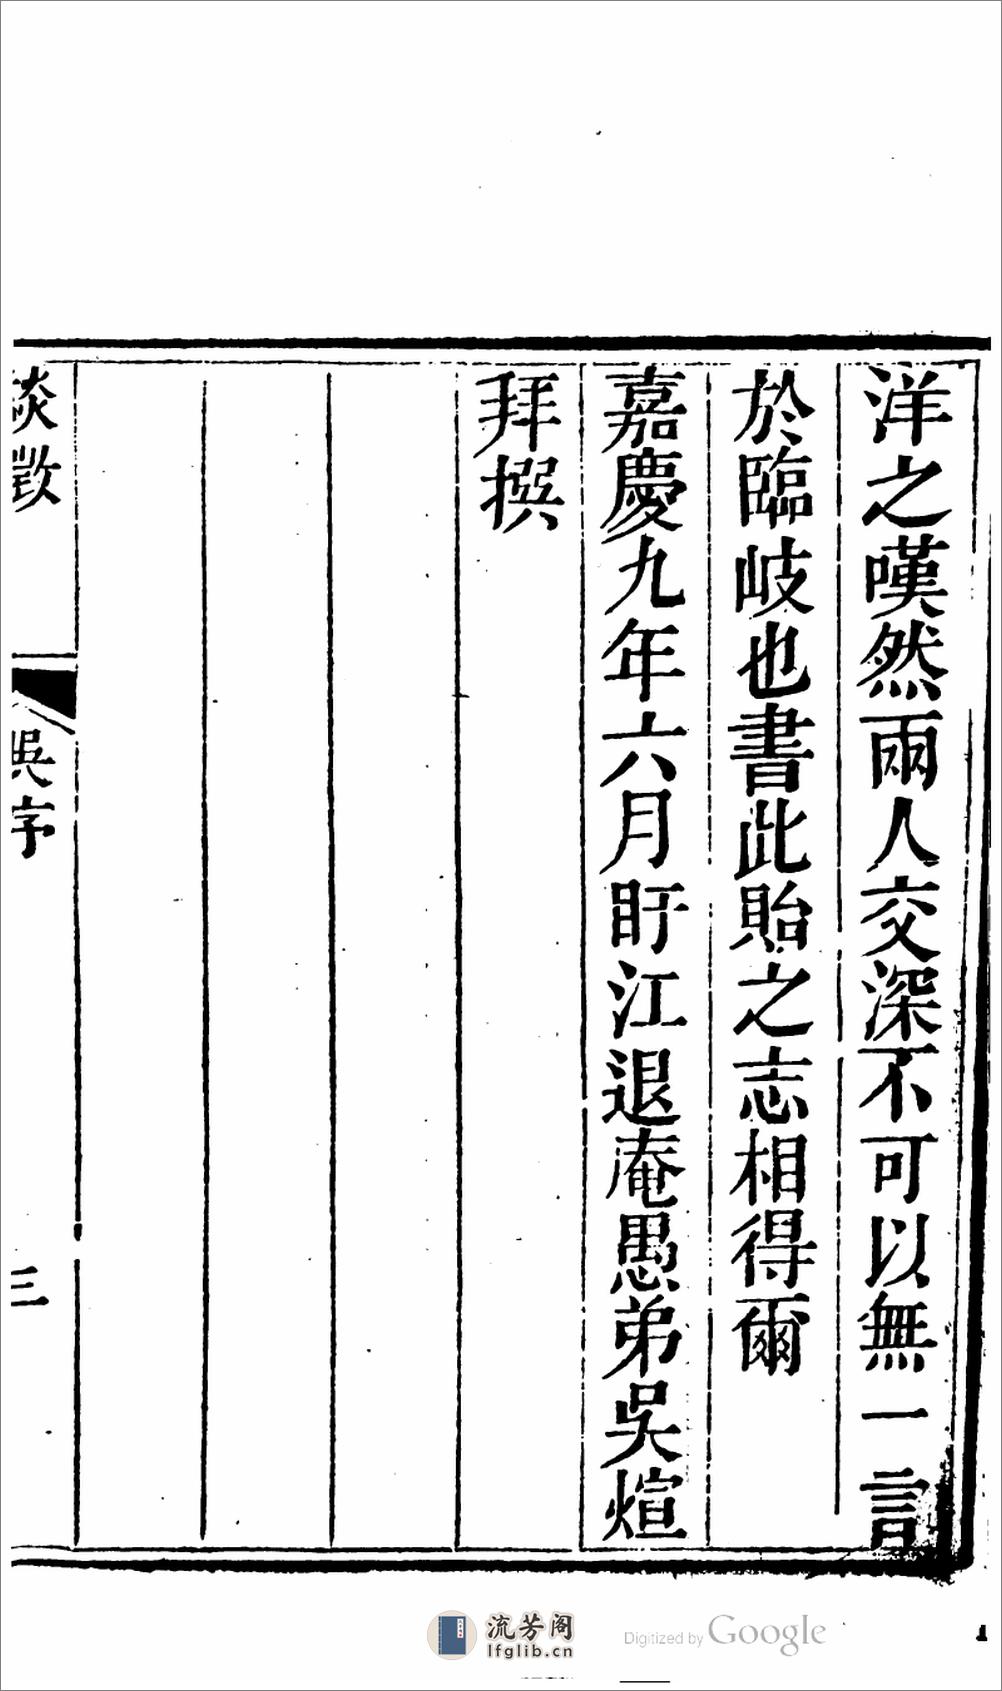 洋之嘆然兩人交深不可以無一言
於臨岐也書此貽之志相得爾
嘉慶九年六月盱江退庵愚弟吳煊
拜撰
談徵
吳序
三
流芳阁
lfglib.cn
Digitized by Google